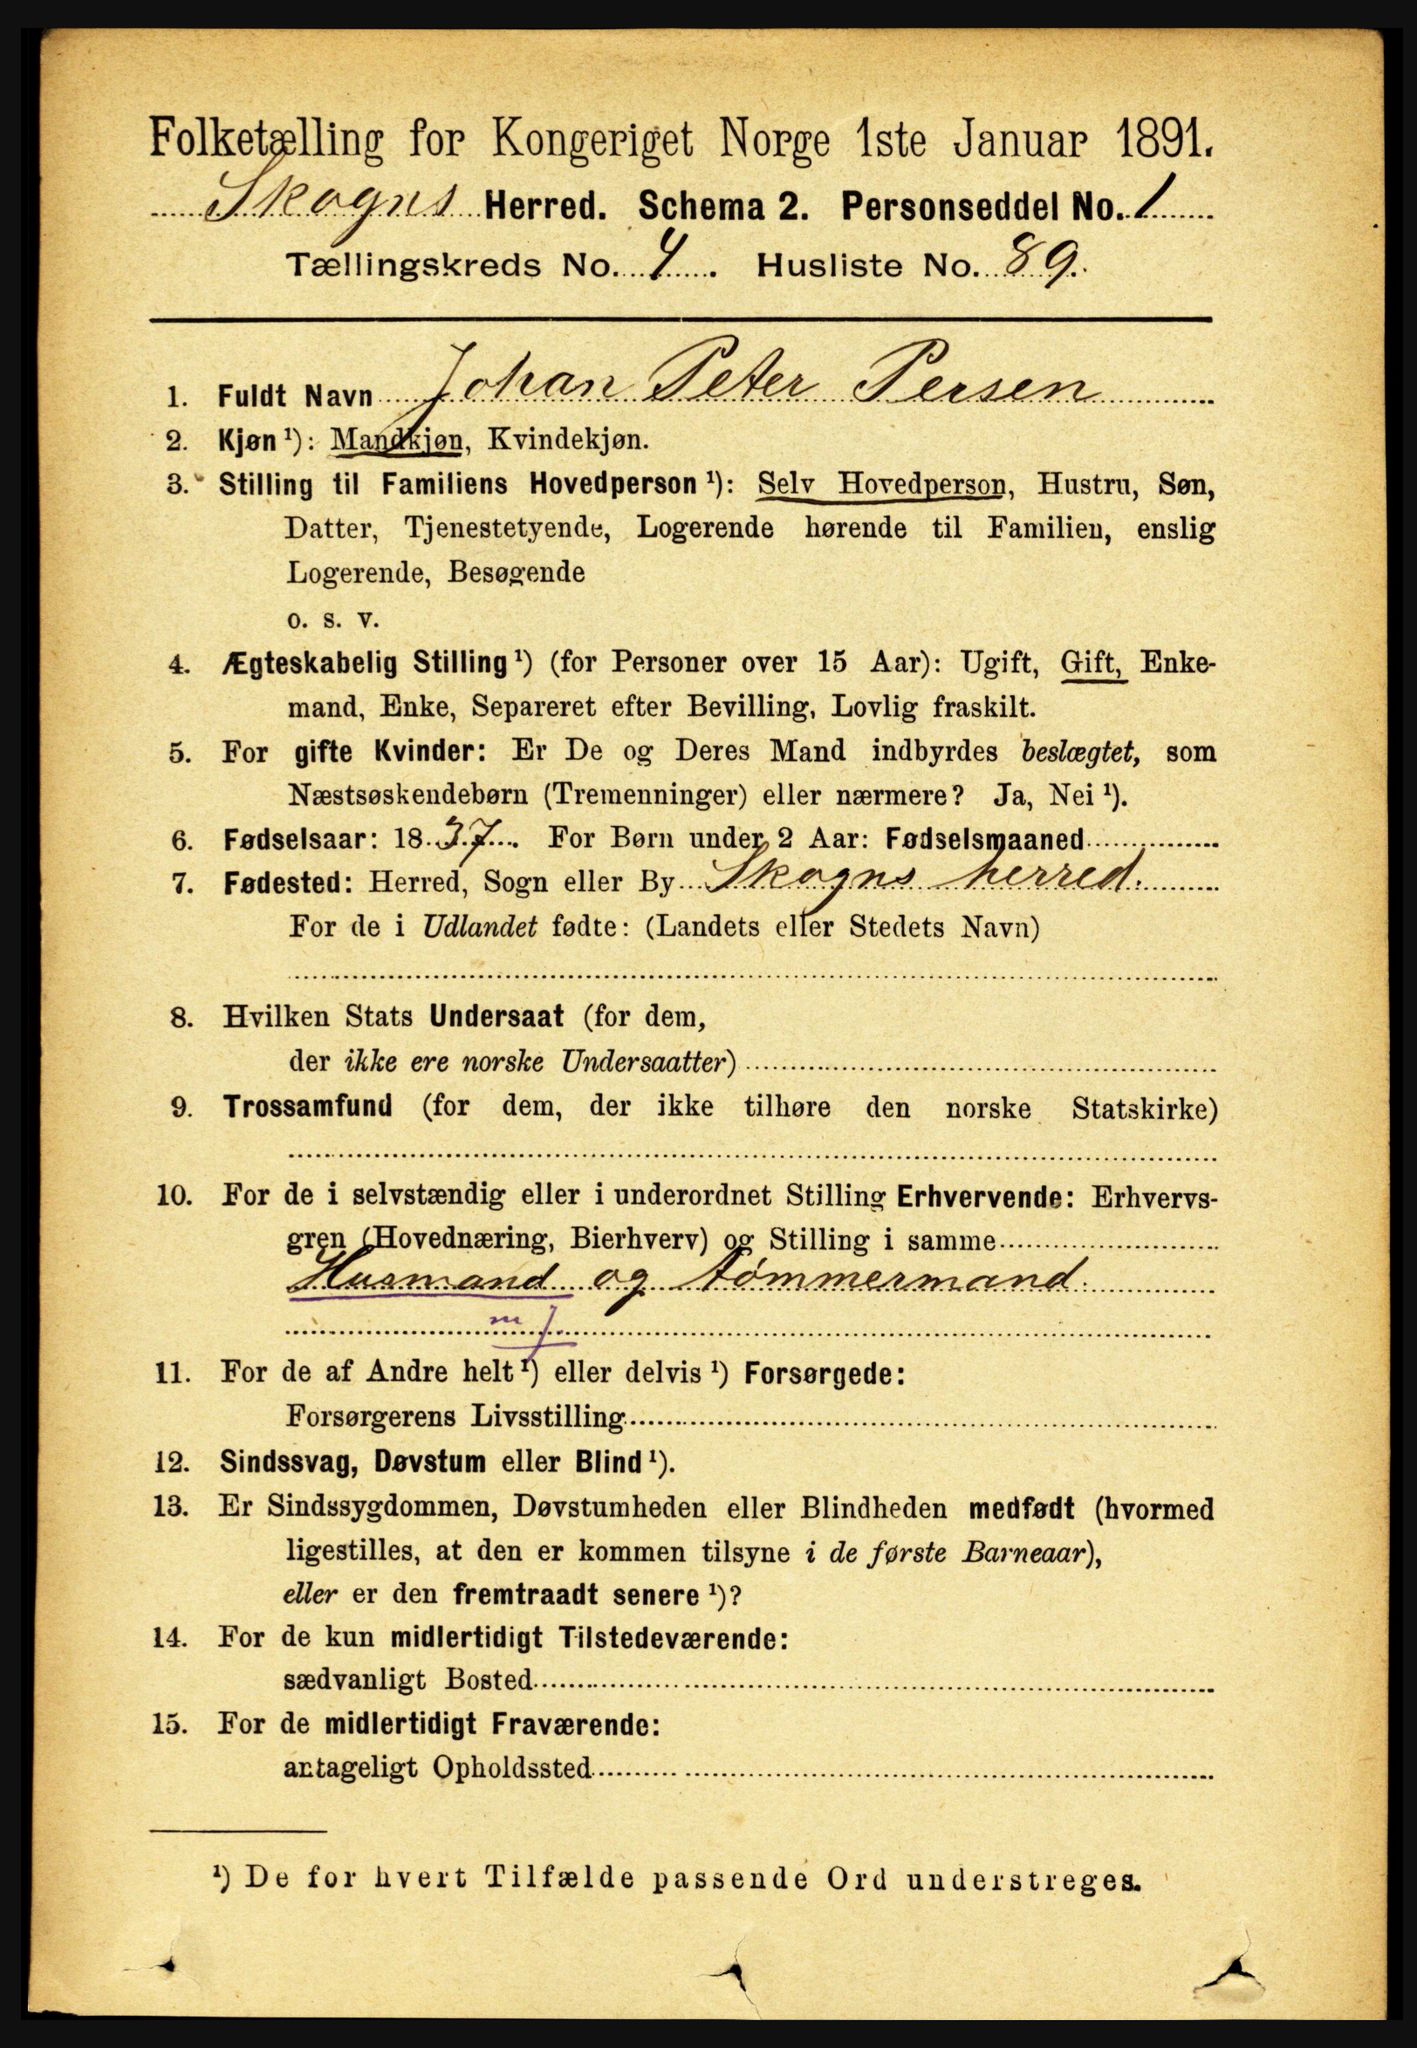 Folketælling for Kongeriget Norge 1ste Januar 1891.
Skogns Herred. Schema 2. Personseddel No. 1
Tællingskreds No. 4. Husliste No. 89.
1. Fuldt Navn Johan Peter Persen
2. Kjøn ¹): Mandkjøn, Kvindekjøn.
3. Stilling til Familiens Hovedperson ¹): Selv Hovedperson, Hustru, Søn,
Datter, Tjenestetyende, Logerende hørende til Familien, enslig
Logerende, Besøgende
o. s. v.
4. Ægteskabelig Stilling ¹) (for Personer over 15 Aar): Ugift, Gift, Enke-
mand, Enke, Separeret efter Bevilling, Lovlig fraskilt.
5. For gifte Kvinder: Er De og Deres Mand indbyrdes beslægtet, som
Næstsøskendebørn (Tremenninger) eller nærmere? Ja, Nei ¹).
6. Fødselsaar: 1837. For Børn under 2 Aar: Fødselsmaaned
7. Fødested: Herred, Sogn eller By Skogns herred.
For de i Udlandet fødte: (Landets eller Stedets Navn)
8. Hvilken Stats Undersaat (for dem,
der ikke ere norske Undersaatter)
9. Trossamfund (for dem, der ikke tilhøre den norske Statskirke)
10. For de i selvstændig eller i underordnet Stilling Erhvervende: Erhvervs-
gren (Hovednæring, Bierhverv) og Stilling i samme
Husmand og tømmermand.
m J
11. For de af Andre helt ¹) eller delvis ¹) Forsørgede:
Forsørgerens Livsstilling
12. Sindssvag, Døvstum eller Blind ¹).
13. Er Sindssygdommen, Døvstumheden eller Blindheden medfødt (hvormed
ligestilles, at den er kommen tilsyne i de første Barneaar),
eller er den fremtraadt senere ¹)?
14. For de kun midlertidigt Tilstedeværende:
sædvanligt Bosted
15. For de midlertidigt Fraværende:
antageligt Opholdssted
¹) De for hvert Tilfælde passende Ord understreges.